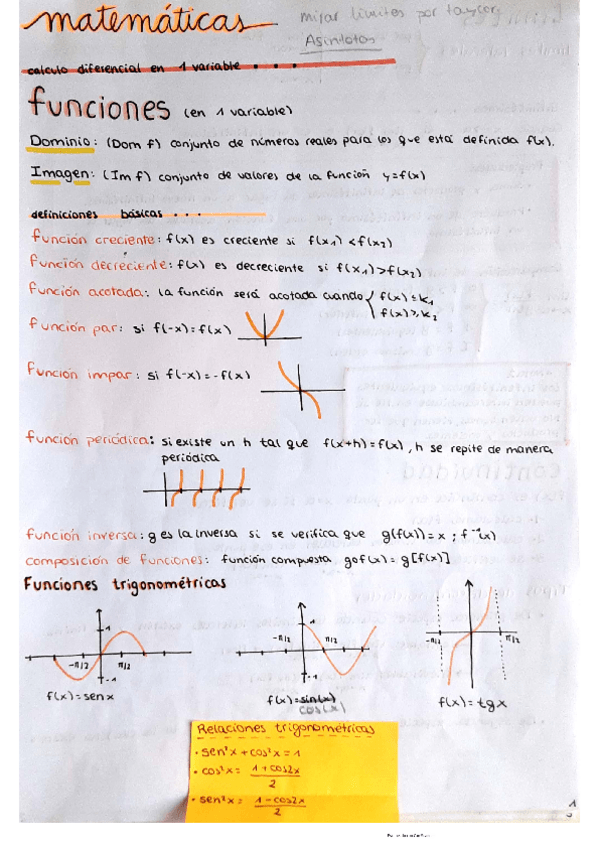 matemáticas
mirar límites por taylor
Asíntotas
calculo diferencial en 1 variable . . .
funciones (en 1 variable)
Dominio: (Dom f) conjunto de números reales para los que está definida f(x).
Imagen: (Im f) conjunto de valores de la función y=f(x)
definiciones básicas . . .
función creciente: f(x) es creciente si f(x1) < f(x2)
función decreciente: f(x) es decreciente si f(x1) > f(x2)
función acotada: la función será acotada cuando { f(x) ≤ k1
f(x) ≥ k2
función par: si f(-x)=f(x)
función impar: si f(-x)=-f(x)
función periódica: si existe un h tal que f(x+h)=f(x), h se repite de manera
periódica
función inversa: g es la inversa si se verifica que g(f(x))=x ; f⁻¹(x)
composición de funciones: función compuesta gof(x)= g[f(x)]
Funciones trigonométricas
1
-π/2 π/2
-1
f(x)=senx
1
-π/2 π/2
-1
f(x)=sin(x)
cos(x)
-π/2 π/2
f(x)=tgx
Relaciones trigonométricas
• sen²x + cos²x = 1
• cos²x = 1+cos2x
2
• sen²x = 1-cos2x
2
1